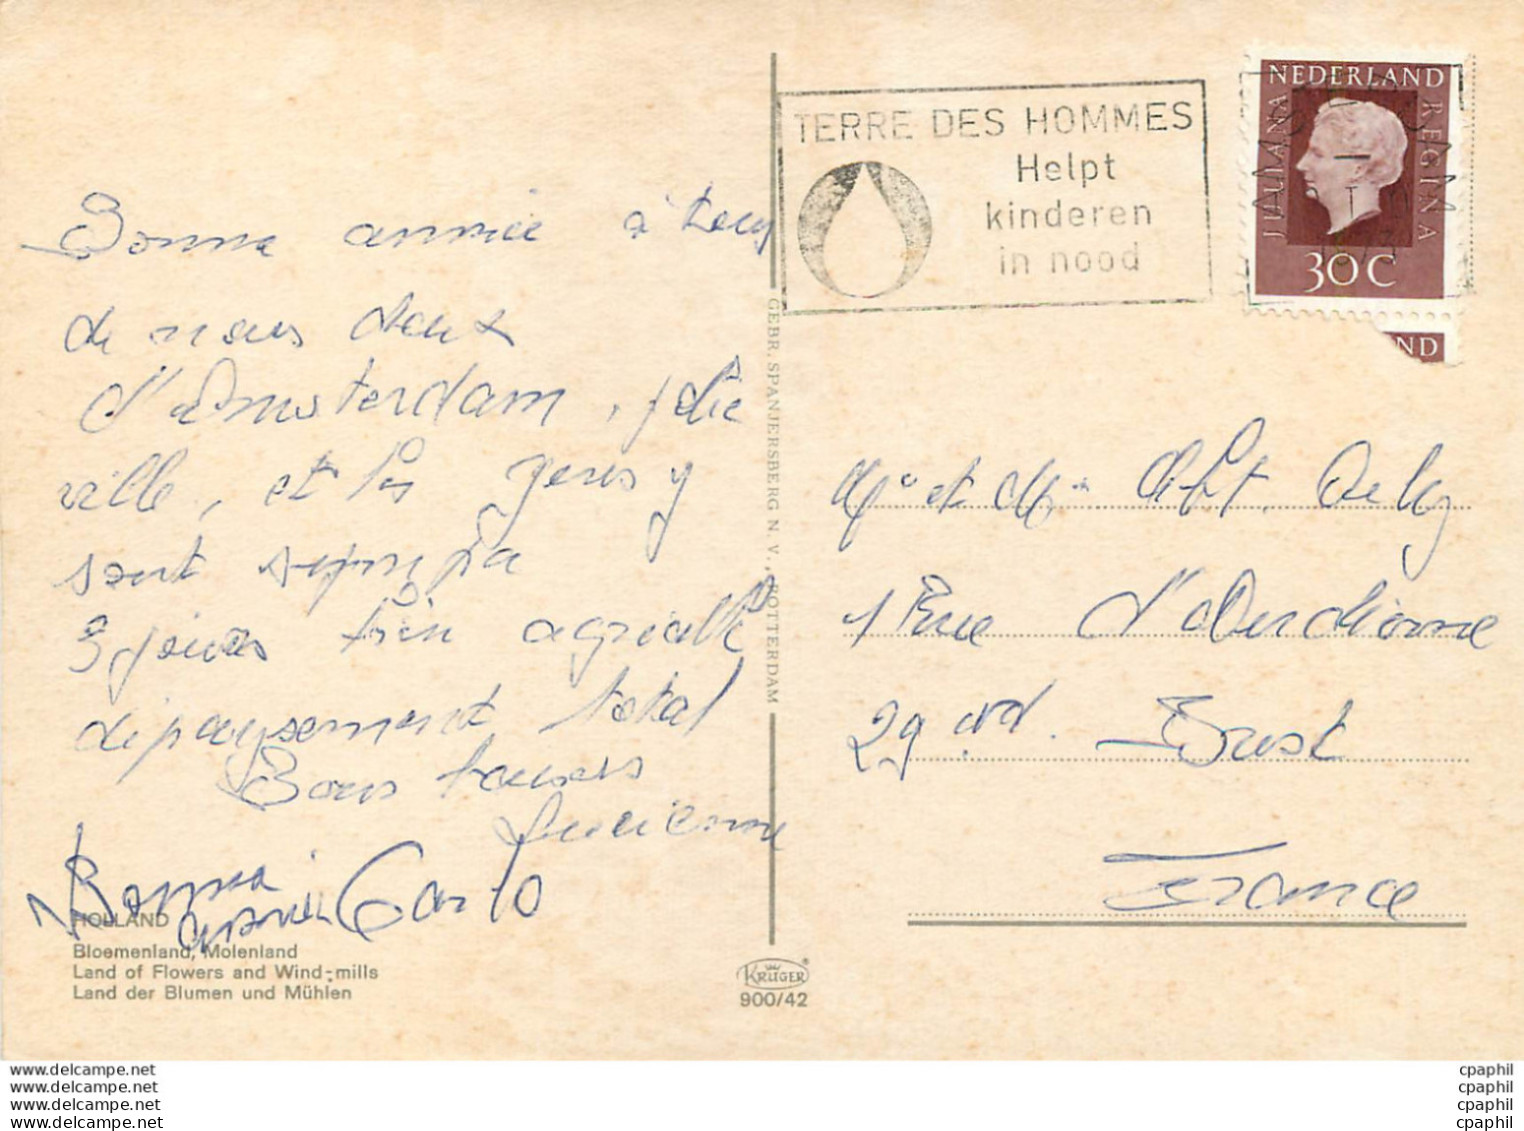 Bonne année à tous
de nous deux
d'Amsterdam, jolie
ville, et les gens y
sont sympa
3 jours très agréable
dépaysement total
Bons baisers
Lucienne
Bonne
année Carlo
HOLLAND
Bloemenland, Molenland
Land of Flowers and Wind-mills
Land der Blumen und Mühlen
GEBR. SPANJERSBERG N.V., ROTTERDAM
KRÜGER
900/42
TERRE DES HOMMES
Helpt
kinderen
in nood
NEDERLAND
JULIANA REGINA
30C
ND
Mr et Mme
1 Rue
29 Brest
France
www.delcampe.net
www.delcampe.net
www.delcampe.net
www.delcampe.net
cpaphil
cpaphil
cpaphil
cpaphil